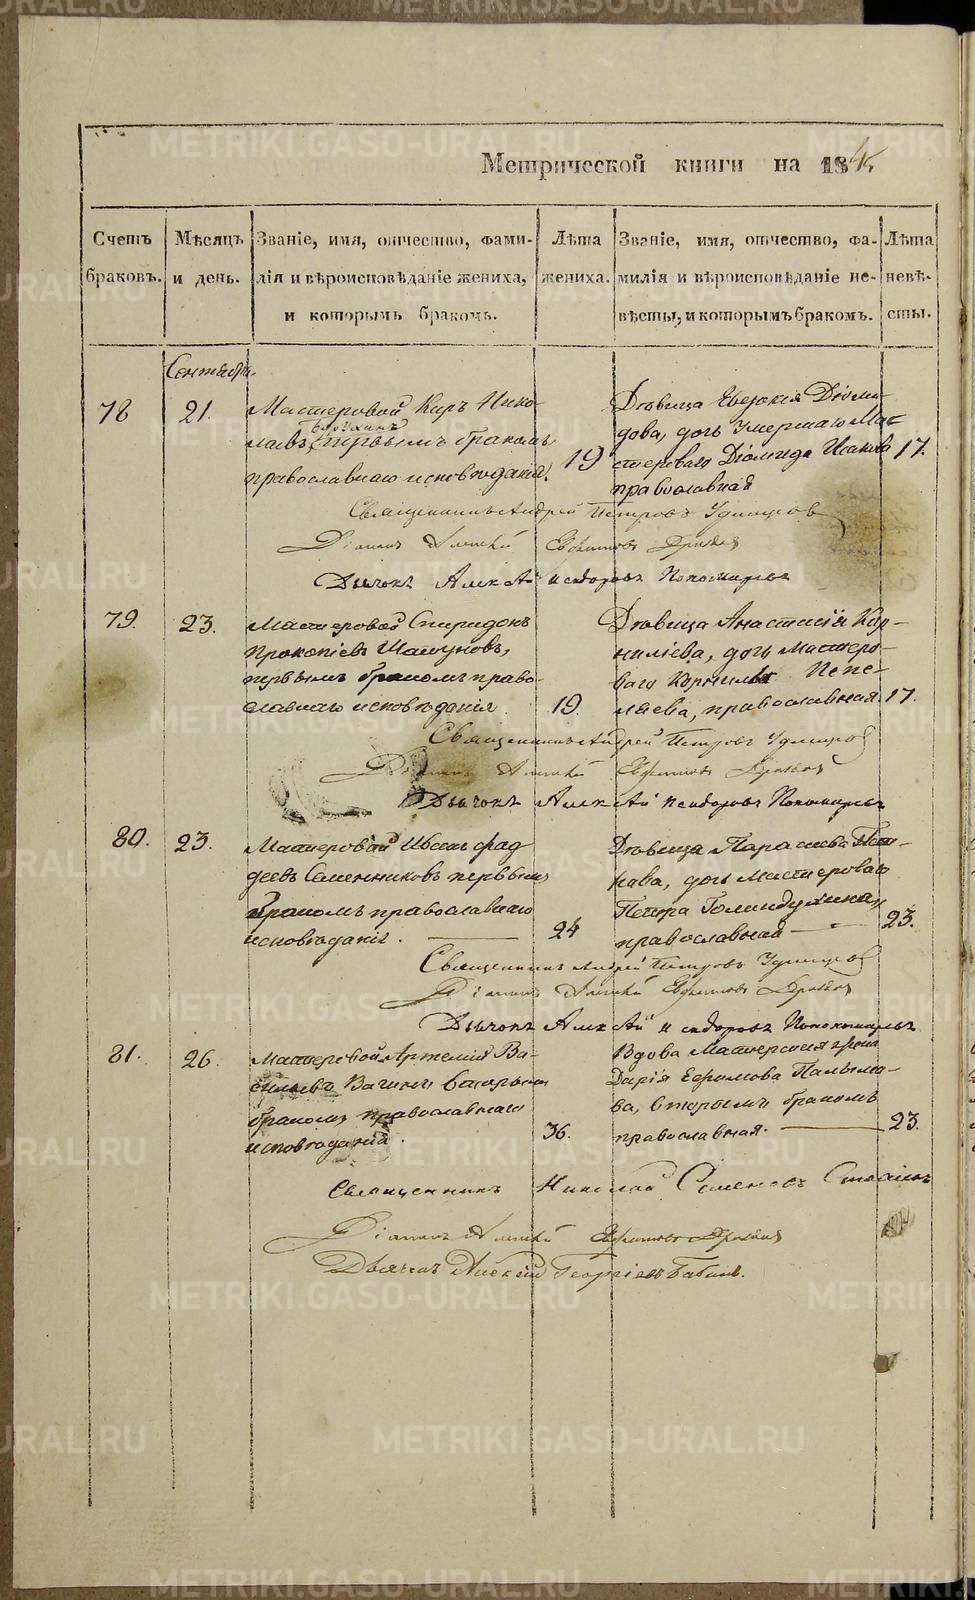 Метрической книги на 1845
Счетъ браковъ.
Мѣсяцъ и день.
Званіе, имя, отчество, фами-
лія и вѣроисповѣданіе жениха,
и которымъ бракомъ.
Лѣта жениха.
Званіе, имя, отчество, фа-
милія и вѣроисповѣданіе не-
вѣсты, и которымъ бракомъ.
Лѣта невѣ-
сты.
Сентября.
78
21.
Мастеровой Киръ Нико-
лаевъ первымъ бракомъ
православнаго исповѣданія.
19
Дѣвица Евдокія Діоми-
дова, дочь умершаго Мас-
тероваго Діомида Исакова
православная
17.
Священникъ Андрей Петровъ Удинцовъ
Діаконъ Алексѣй Евфимовъ
Дьячокъ Алексѣй Исидоровъ Пономаревъ
79.
23.
Мастеровой Спиридонъ
Прокопіевъ Шашуновъ,
первымъ бракомъ право-
славнаго исповѣданія
19.
Дѣвица Анастасія Кор-
нилѣева, дочь Мастеро-
ваго Корнилья Пепе-
ляева, православная.
17.
Священникъ Андрей Петровъ Удинцовъ
Діаконъ Алексѣй Евфимовъ
Дьячокъ Алексѣй Исидоровъ Пономаревъ
80.
23.
Мастеровой Иванъ Фад-
деевъ Семенниковъ первымъ
бракомъ православнаго
исповѣданія.
24
Дѣвица Параскева Пет-
рова, дочь Мастероваго
Петра Голиндухина,
православная
23.
Священникъ Андрей Петровъ Удинцовъ
Діаконъ Алексѣй Евфимовъ
Дьячокъ Алексѣй Исидоровъ Пономаревъ
81.
26.
Мастеровой Артемій Ва-
сильевъ Вагинъ вторымъ
бракомъ православнаго
исповѣданія.
36.
Вдова Мастерская жена
Дарія Ефимова Палымо-
ва, вторымъ бракомъ
православная.
23.
Священникъ Николай Семеновъ
Діаконъ Алексѣй Евфимовъ
Дьячекъ Алексѣй Георгіевъ Бабинъ.
METRIKI.GASO-URAL.RU